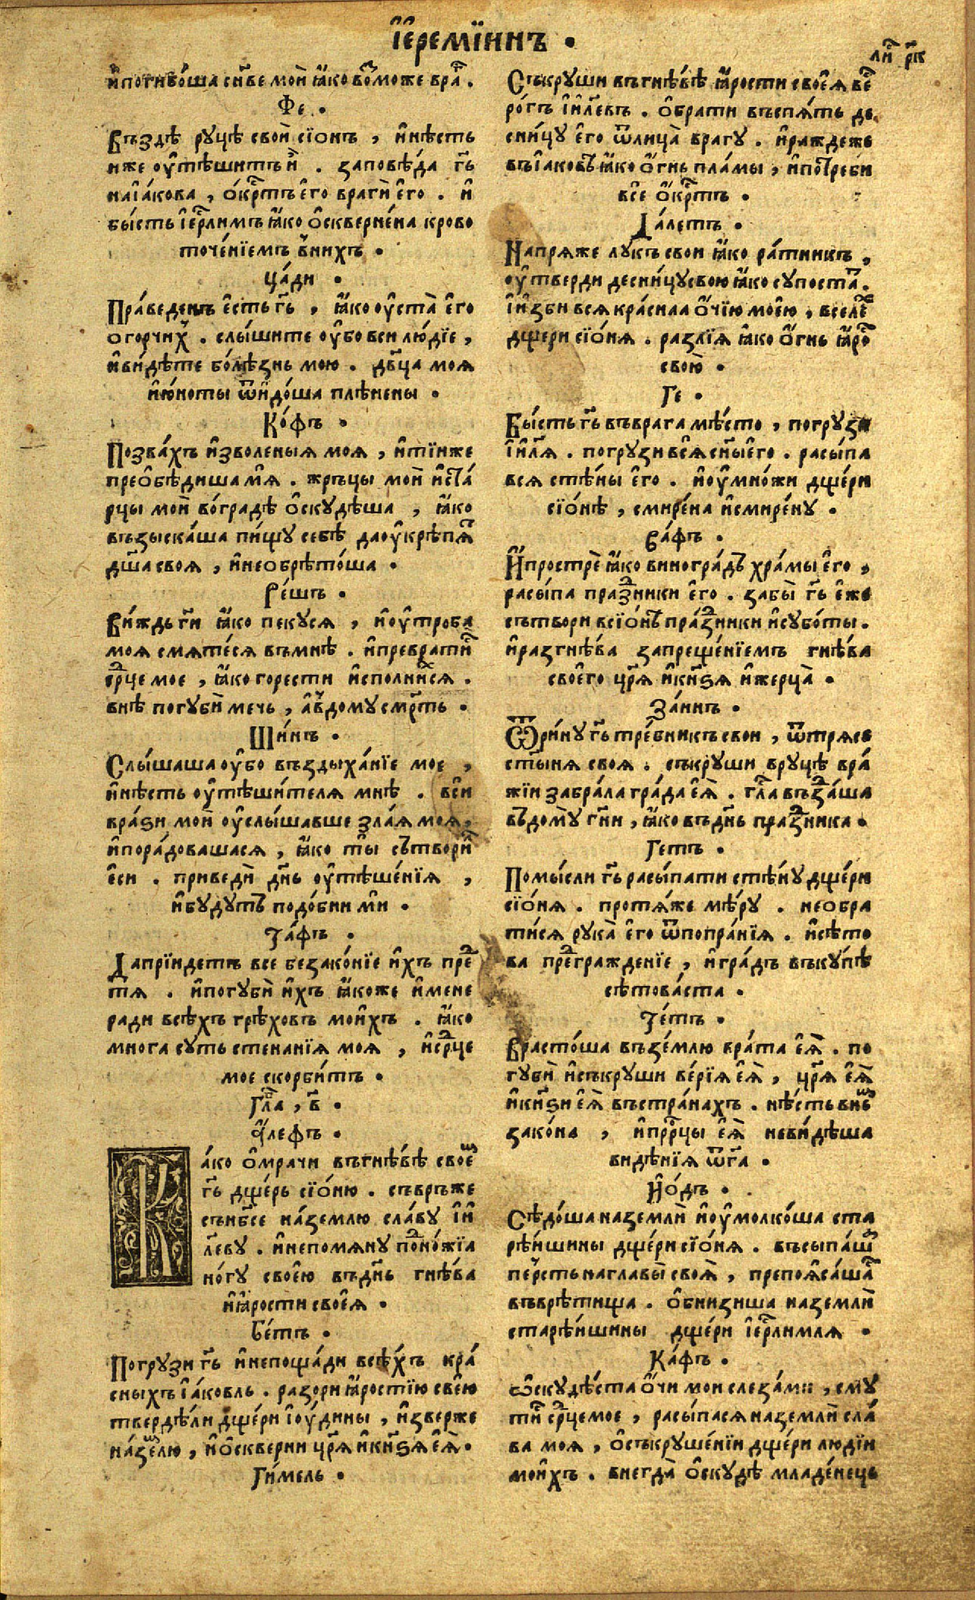 І҆еремїинъ .
ли́ рк
и҆погибо́ша сн҃ве мои̑ ꙗ҆́ко возможе вра́г .
Фе .
Въздѣ́ руцѣ свои̑ сїонъ , и҆нѣсть
иже оу҆тѣшитъ и҆̀ . заповѣ́да гь҃
наїа́кова , о҆́крⷭтъ е҆го̀ враги̑ е҆го̀ . и҆̀
бы́сть і҆ерⷭлимъ ꙗ҆́ко о҆скверне́на крово
точе́нїемъ в̾нихъ .
Ца́ди .
Пра́веденъ е҆́сть гь҃ , ꙗ҆́ко оу҆ста̀ е҆го̀
огорчиⷯ . слы́шите оу҆́бо вси лю́дїе ,
и҆ви́дѣте болѣ́знь мою . дв҃ца моя
и҆ю́ноты ѿи҆до́ша плѣ́нени .
Ко́фъ .
Позва́хъ и҆зволеныя моя , и҆тїи́же
преѡбѣ́диша мя̀ . жръцы мои̑ и҆ста́
рцы мои̑ во́градѣ о҆скудѣ́ша , ꙗ҆́ко
възыска́ша пи́щу себѣ̀ даоу҆крѣпяⷮ
дш҃а своя , и҆необрѣто́ша .
Ре́шъ .
Ви́ждь гѝ ꙗ҆́ко пекуся , и҆оу҆тро́ба
моя смяте́ся въмнѣ̀ . и҆преврати́
ср҃це мое , ꙗ҆́ко горести и҆спо́лнися .
внѣ̀ погубѝ мечь , а҆в̾дому смрⷭть .
Ши́нъ .
Слы́шаша оу҆́бо въздыха́нїе мое ,
и҆нѣсть оу҆тѣши́теля мнѣ̀ . всѝ
врази мои̑ оу҆слы́шавше зла́я моя ,
и҆пора́довашася , ꙗ҆́ко ты̀ сътвори́
е҆сѝ . приведѝ дн҃ь оу҆тѣше́нїя ,
и҆бу́дутъ подо́бни мѝ .
Та́фъ .
Даприидетъ все безако́нїе и҆́хъ преⷣ
тя . и҆погубѝ и҆́хъ ꙗ҆́коже и҆́мене
ради всѣхъ грѣ́ховъ мои̑хъ . ꙗ҆́ко
многа суть стенанїя моя , и҆ср҃це
мое скорби́тъ .
Гла , в҃ .
А҆́лефъ .
Ка́ко о҆мрачи въгнѣ́вѣ своеⷨ
гь҃ дще́рь сїо́ню . съврьже
сънб҃се на́землю сла́ву і҆и҃
левꙋ . и҆непомяну по́ножїа
но́гу своею̀ въдн҃ь гнѣ́ва
и҆ꙗ҆́рости своея̀ .
Бе́тъ .
Погрузи гь҃ и҆непоща́ди всѣ́хъ кра́
сныхъ і҆а́ковль . разори ꙗ҆́ростїю своею̀
твердѣ́ли дще́ри і҆оу́дины , и҆зверже
на́землю , и҆о҆скверни цр҃я и҆кн҃ѕя е҆я̀ .
Ги́мель .
Съкруши въгнѣ́вѣ ꙗ҆́рости своея̀ ве́
рогъ і҆и҃левъ . о҆брати въспя́ть де
сни́цу е҆го̀ ѿлица̀ врагу . и҆раждеже
въїа́ковѣ ꙗ҆́ко о҆́гнь пла́мы , и҆потреби
все о҆́крⷭтъ .
Да́летъ .
Напряже лукъ свои ꙗ҆́ко ра́тникъ ,
оу҆тверди десни́цусвою ꙗ҆́ко супоста́т .
і҆и҆зби вся кра́снаа о҆́чїю моею̀ , вселе́
дще́ри сїо́ня . разлїя ꙗ҆́ко о҆́гнь ꙗ҆́роⷭ
свою̀ .
Ге .
Бы́сть гь҃ въврага мѣ́сто , погрузи
і҆и҃ля . погрузи вся̀ сн҃ы е҆го . расы́па
вся стѣ́ны е҆го . и҆оу҆мно́жи дще́ри
сїо́нѣ , смире́на и҆смире́ну .
Ва́фъ .
И҆прострѐ ꙗ҆́ко вингра́дъ хра́мы е҆го ,
расы́па пра́зники е҆го . забы̀ гь҃ е҆́же
сътвори всїо́нѣ пра́зники и҆субо́ты .
и҆разгнѣ́ва запреще́нїемъ гнѣ́ва
своего цр҃я и҆кн҃ѕя и҆жерца̀ .
За́инъ .
Ѿри́ну гь҃ тре́бникъ свои , ѿтрясе
ст҃ыня своя . съкруши вруцѣ вра́
жїи забра́ла гра́да е҆я̀ . гла възда́ша
в̾дому гн҃и , ꙗ҆́ко въдн҃ь пра́зника .
Гетъ .
Помы́сли гь҃ расы́пати стѣ́ну дще́ри
сїо́ня . протя́же мѣ́ру . необра
ти́ся рука̀ е҆го ѿпопра́нїя . и҆сѣто
ва преⷣгражденїе , и҆гра́дъ въку́пѣ
сѣтова́ста .
Те́тъ .
Врасто́ша възе́млю врата е҆я̀ . по
губѝ и҆съкруши ве́рїя е҆я̀ , цр҃я е҆я̀
и҆кн҃ѕи е҆я̀ въстра́нахъ . нѣ́сть вниⷯ
зако́на , и҆прⷪ҇рцы е҆я̀ неви́дѣша
видѣ́нїя ѿга .
И҆́одъ .
Сѣдо́ша наземлѝ и҆оу҆молко́ша ста
рѣ́ишины дще́ри сїо́ня . въсыпа́ша
пе́рсть наглавы̀ своя̀ , препоя́саша
въврѣ́тища . о҆бнизиша наземлѝ
старѣ́ишины дще́ри і҆ерⷭлимля .
Ка́фъ .
Ѡ҆скудѣ́ста о҆́чи мои слеза́ми , сму
ти́ ср҃цемое , расы́пася наземлѝ сла́
ва моя , о҆съкруше́нїи дще́ри лю́дїи
мои̑хъ . внегда̀ о҆скудѣ̀ младе́нець